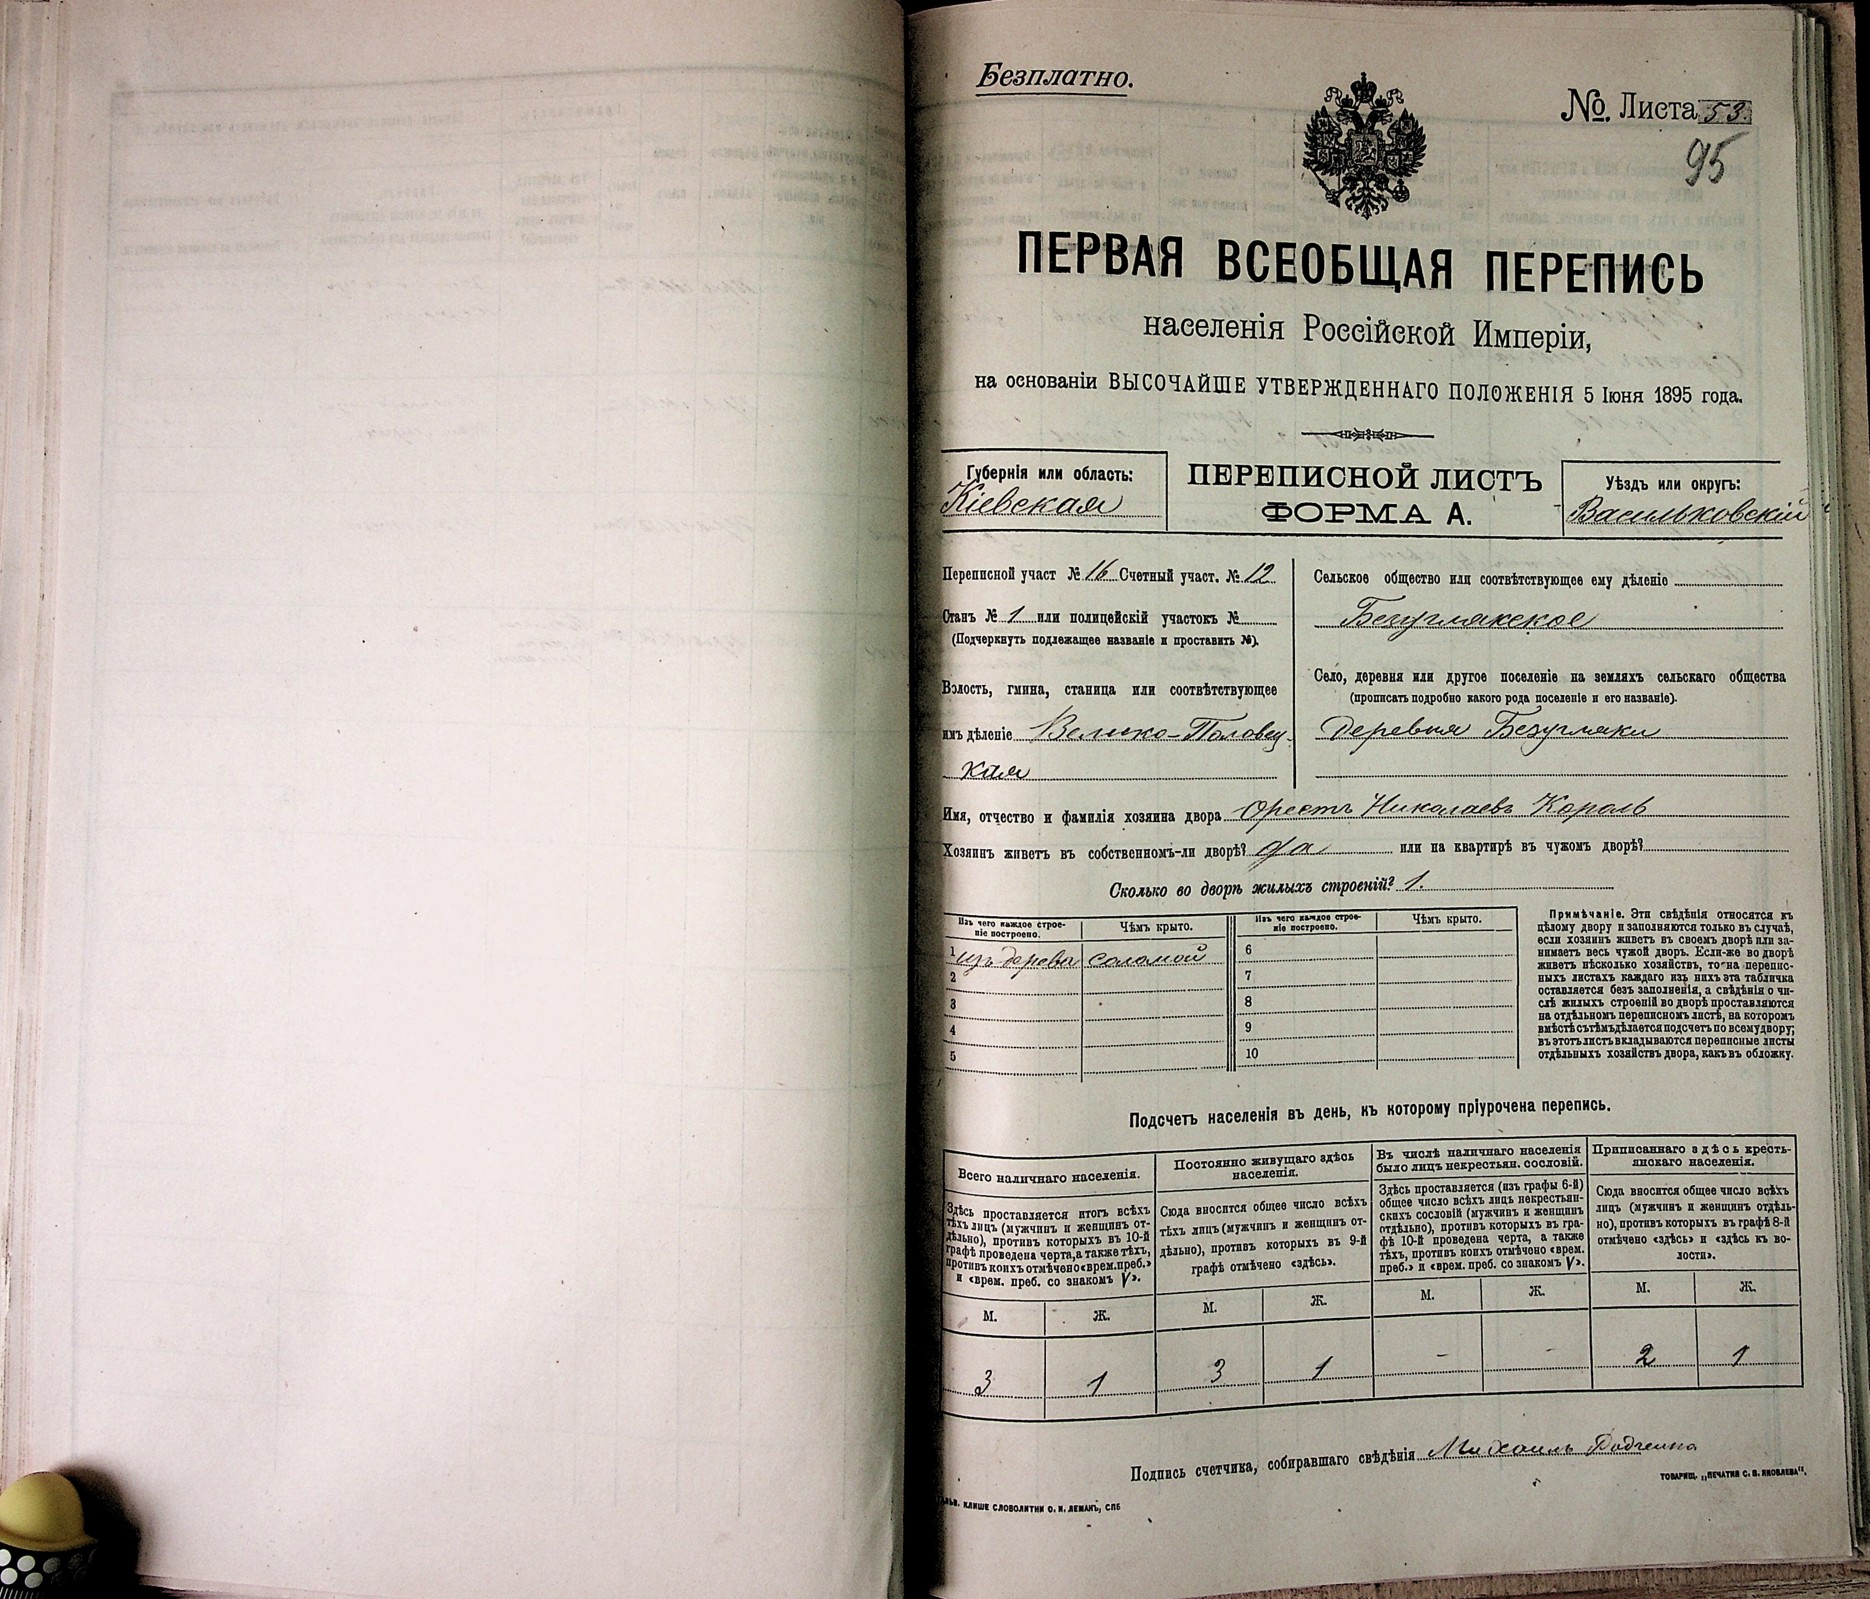 Безплатно.
№. Листа 53.
95
ПЕРВАЯ ВСЕОБЩАЯ ПЕРЕПИСЬ
населенія Россійской Имперіи,
на основаніи ВЫСОЧАЙШЕ УТВЕРЖДЕННАГО ПОЛОЖЕНІЯ 5 Іюня 1895 года.
Губернія или область:
Кіевская
ПЕРЕПИСНОЙ ЛИСТЪ
ФОРМА А.
Уѣздъ или округъ:
Васильковскій
Переписной участ № 16 Счетный участ. № 12
Станъ № 1 или полицейскій участокъ №
(Подчеркнуть подлежащее названіе и проставить №).
Волость, гмина, станица или соотвѣтствующее
имъ дѣленіе Велико-Половец-
кая
Сельское общество или соотвѣтствующее ему дѣленіе
Безуглякское
Село, деревня или другое поселеніе на земляхъ сельскаго общества
(прописать подробно какого рода поселеніе и его названіе).
деревня Безугляки
Имя, отчество и фамилія хозяина двора Орестъ Николаевъ Король
Хозяинъ живетъ въ собственномъ-ли дворѣ? да или на квартирѣ въ чужомъ дворѣ?
Сколько во дворѣ жилыхъ строеній? 1.
Изъ чего каждое строе-
ніе построено.
Чѣмъ крыто.
1 изъ дерева соломой
2
3
4
5
Изъ чего каждое строе-
ніе построено.
Чѣмъ крыто.
6
7
8
9
10
Примѣчаніе. Эти свѣдѣнія относятся къ
цѣлому двору и заполняются только въ случаѣ,
если хозяинъ живетъ въ своемъ дворѣ или за-
нимаетъ весь чужой дворъ. Если-же во дворѣ
живетъ нѣсколько хозяйствъ, то на перепис-
ныхъ листахъ каждаго изъ нихъ эта табличка
оставляется безъ заполненія, а свѣдѣнія о чи-
слѣ жилыхъ строеній во дворѣ проставляются
на отдѣльномъ переписномъ листѣ, на которомъ
вмѣстѣ съ тѣмъ дѣлается подсчетъ по всему двору;
въ этотъ листъ вкладываются переписные листы
отдѣльныхъ хозяйствъ двора, какъ въ обложку.
Подсчетъ населенія въ день, къ которому пріурочена перепись.
Всего наличнаго населенія.
Здѣсь проставляется итогъ всѣхъ
тѣхъ лицъ (мужчинъ и женщинъ от-
дѣльно), противъ которыхъ въ 10-й
графѣ проведена черта, а также тѣхъ,
противъ коихъ отмѣчено «врем. преб.»
и «врем. преб. со знакомъ V».
М. Ж.
3 1
Постоянно живущаго здѣсь
населенія.
Сюда вносится общее число всѣхъ
тѣхъ лицъ (мужчинъ и женщинъ от-
дѣльно), противъ которыхъ въ 9-й
графѣ отмѣчено «здѣсь».
М. Ж.
3 1
Въ числѣ наличнаго населенія
было лицъ некрестьян. сословій.
Здѣсь проставляется (изъ графы 6-й)
общее число всѣхъ лицъ некрестьян-
скихъ сословій (мужчинъ и женщинъ
отдѣльно), противъ которыхъ въ гра-
фѣ 10-й проведена черта, а также
тѣхъ, противъ коихъ отмѣчено «врем.
преб.» и «врем. преб. со знакомъ V».
М. Ж.
- -
Приписаннаго здѣсь кресть-
янскаго населенія.
Сюда вносится общее число всѣхъ
лицъ (мужчинъ и женщинъ отдѣль-
но), противъ которыхъ въ графѣ 8-й
отмѣчено «здѣсь» и «здѣсь къ во-
лости».
М. Ж.
2 1
Подпись счетчика, собиравшаго свѣдѣнія Михаилъ
ТОВАРИЩ. „ПЕЧАТНЯ С. П. ЯКОВЛЕВА".
КЛИШЕ СЛОВОЛИТНИ О. И. ЛЕМАНЪ, СПБ